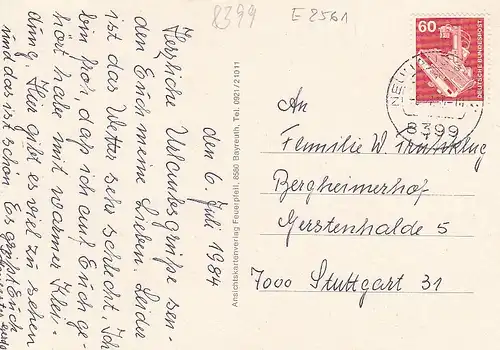 8399
E 8561
60
DEUTSCHE BUNDESPOST
8399
den 6. Juli 1984
Herzliche Urlaubsgrüße sen-
den Euch meine Lieben. Leider
ist das Wetter sehr schlecht. Ich
bin froh, daß ich auf Euch ge-
hört habe mit warmer Klei-
dung. Hier gibt es viel zu sehen
und das ist schön. Es grüßt Euch
Ansichtskartenverlag Feuerpfeil, 8580 Bayreuth, Tel. 0921/21011
An
Familie W.
Bergheimerhof-
Gerstenhalde 5
7000 Stuttgart 31